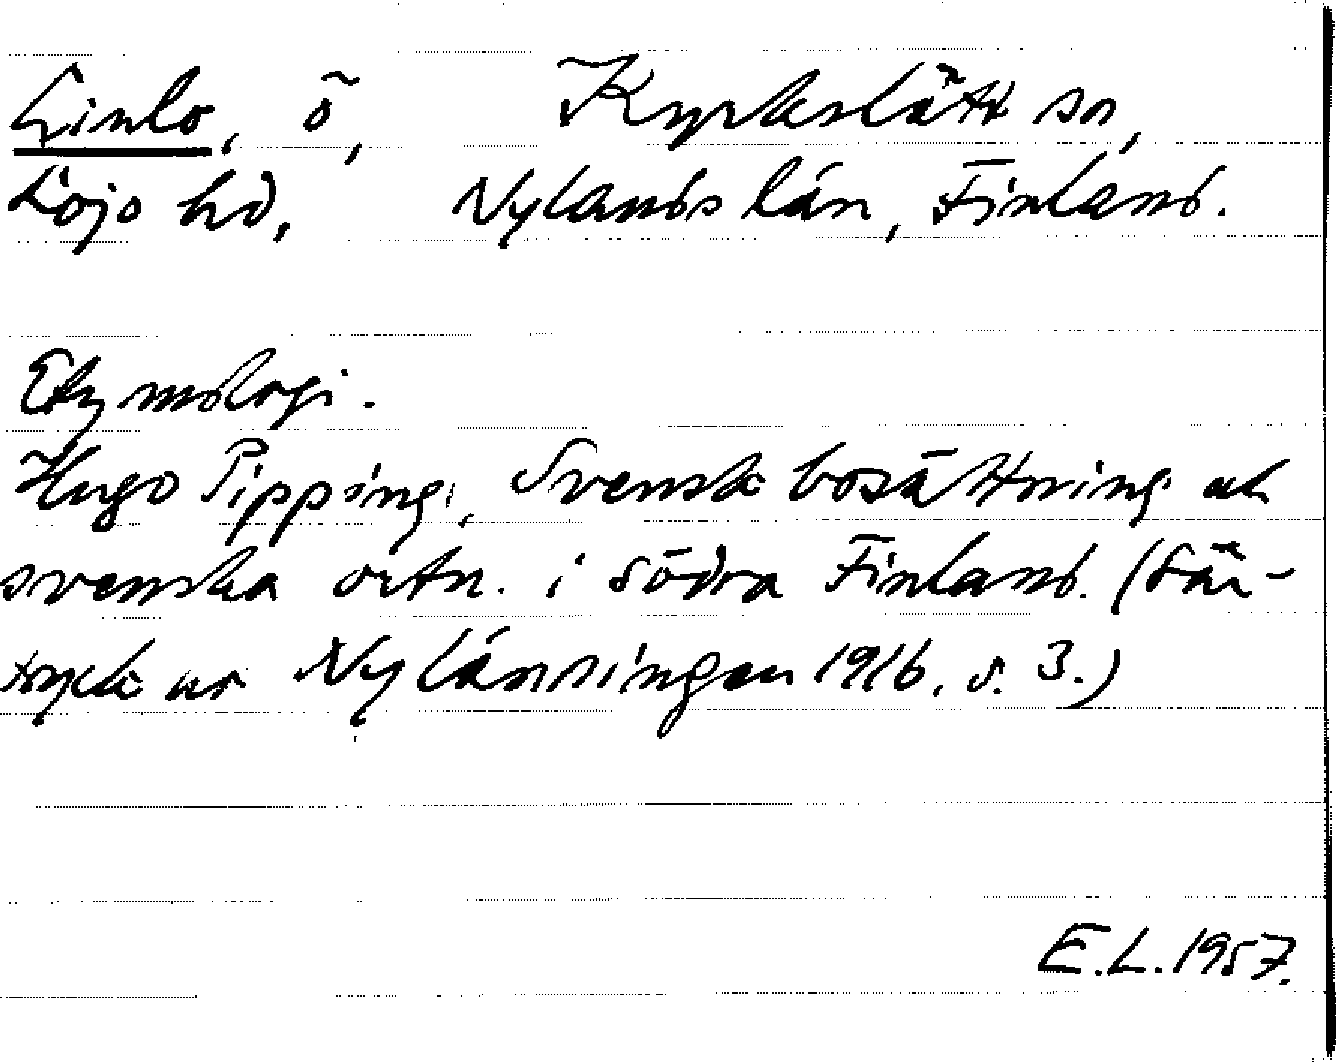 Linlo, ö, Kyrkslätt sn,
Lojo hd, Nylands län, Finland.
Etymologi.
Hugo Pipping, Svensk bosättning och
svenska ortn. i södra Finland. (Sär-
tryck ur Nylänningen 1916, s. 3.)
E.L. 1957.